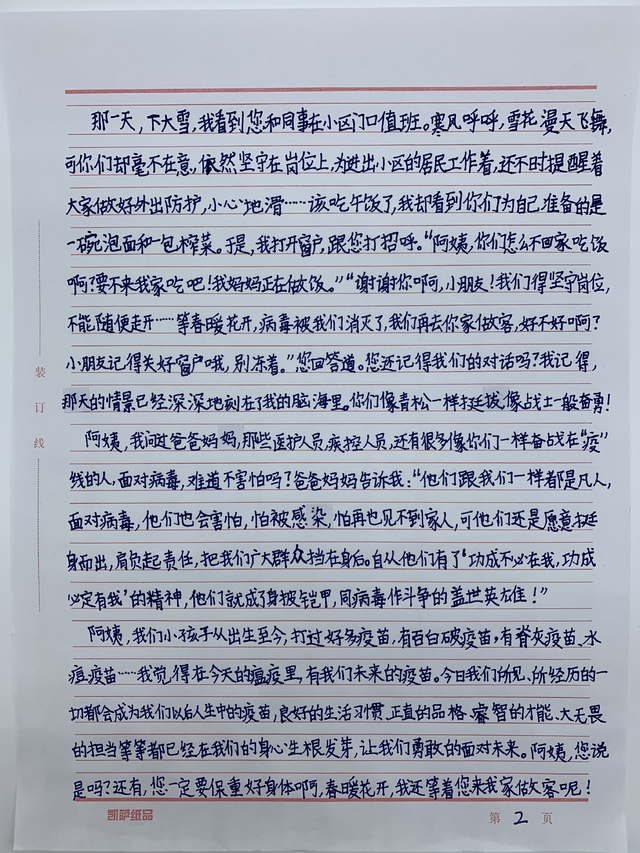 那一天，下大雪，我看到您和同事在小区门口值班。寒风呼呼，雪花漫天飞舞，
可你们却毫不在意，依然坚守在岗位上，为进出小区的居民工作着，还不时提醒着
大家做好外出防护，小心地滑……该吃午饭了，我却看到你们为自己准备的是
一碗泡面和一包榨菜。于是，我打开窗户，跟您打招呼。“阿姨，你们怎么不回家吃饭
啊？要不来我家吃吧！我妈妈正在做饭。”“谢谢你啊，小朋友！我们得坚守岗位，
不能随便走开……等春暖花开，病毒被我们消灭了，我们再去你家做客，好不好啊？
小朋友记得关好窗户哦，别冻着。”您回答道。您还记得我们的对话吗？我记得，
那天的情景已经深深地刻在了我的脑海里。你们像青松一样挺拔，像战士一般奋勇！
阿姨，我问过爸爸妈妈，那些医护人员，疾控人员，还有很多像你们一样奋战在“疫”
线的人，面对病毒，难道不害怕吗？爸爸妈妈告诉我：“他们跟我们一样都是凡人，
面对病毒，他们也会害怕，怕被感染，怕再也见不到家人，可他们还是愿意挺
身而出，肩负起责任，把我们广大群众挡在身后。自从他们有了‘功成不必在我，功成
必定有我’的精神，他们就成了身披铠甲，同病毒作斗争的盖世英雄！”
阿姨，我们小孩子从出生至今，打过好多疫苗，有百白破疫苗，有脊灰疫苗、水
痘疫苗……我觉得在今天的瘟疫里，有我们未来的疫苗。今日我们所见、所经历的一
切都会成为我们以后人生中的疫苗，良好的生活习惯、正直的品格、睿智的才能、大无畏
的担当等等都已经在我们的身心生根发芽，让我们勇敢的面对未来。阿姨，您说
是吗？还有，您一定要保重好身体啊，春暖花开，我还等着您来我家做客呢！
装
订
线
凯萨纸品
第 2 页